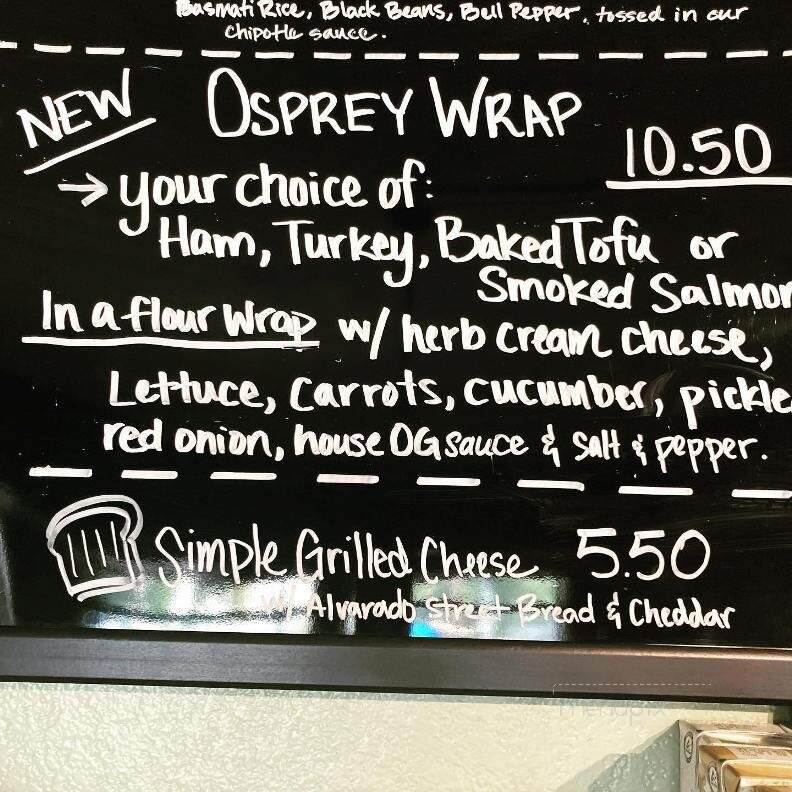 Basmati Rice, Black Beans, Bell Pepper, tossed in our
chipotle sauce.
NEW OSPREY WRAP
10.50
→ your choice of:
Ham, Turkey, Baked Tofu or
Smoked Salmon
In a flour wrap w/ herb cream cheese,
Lettuce, carrots, cucumber, pickle
red onion, house OG sauce & salt & pepper.
Simple Grilled Cheese 5.50
w/ Alvarado Street Bread & Cheddar